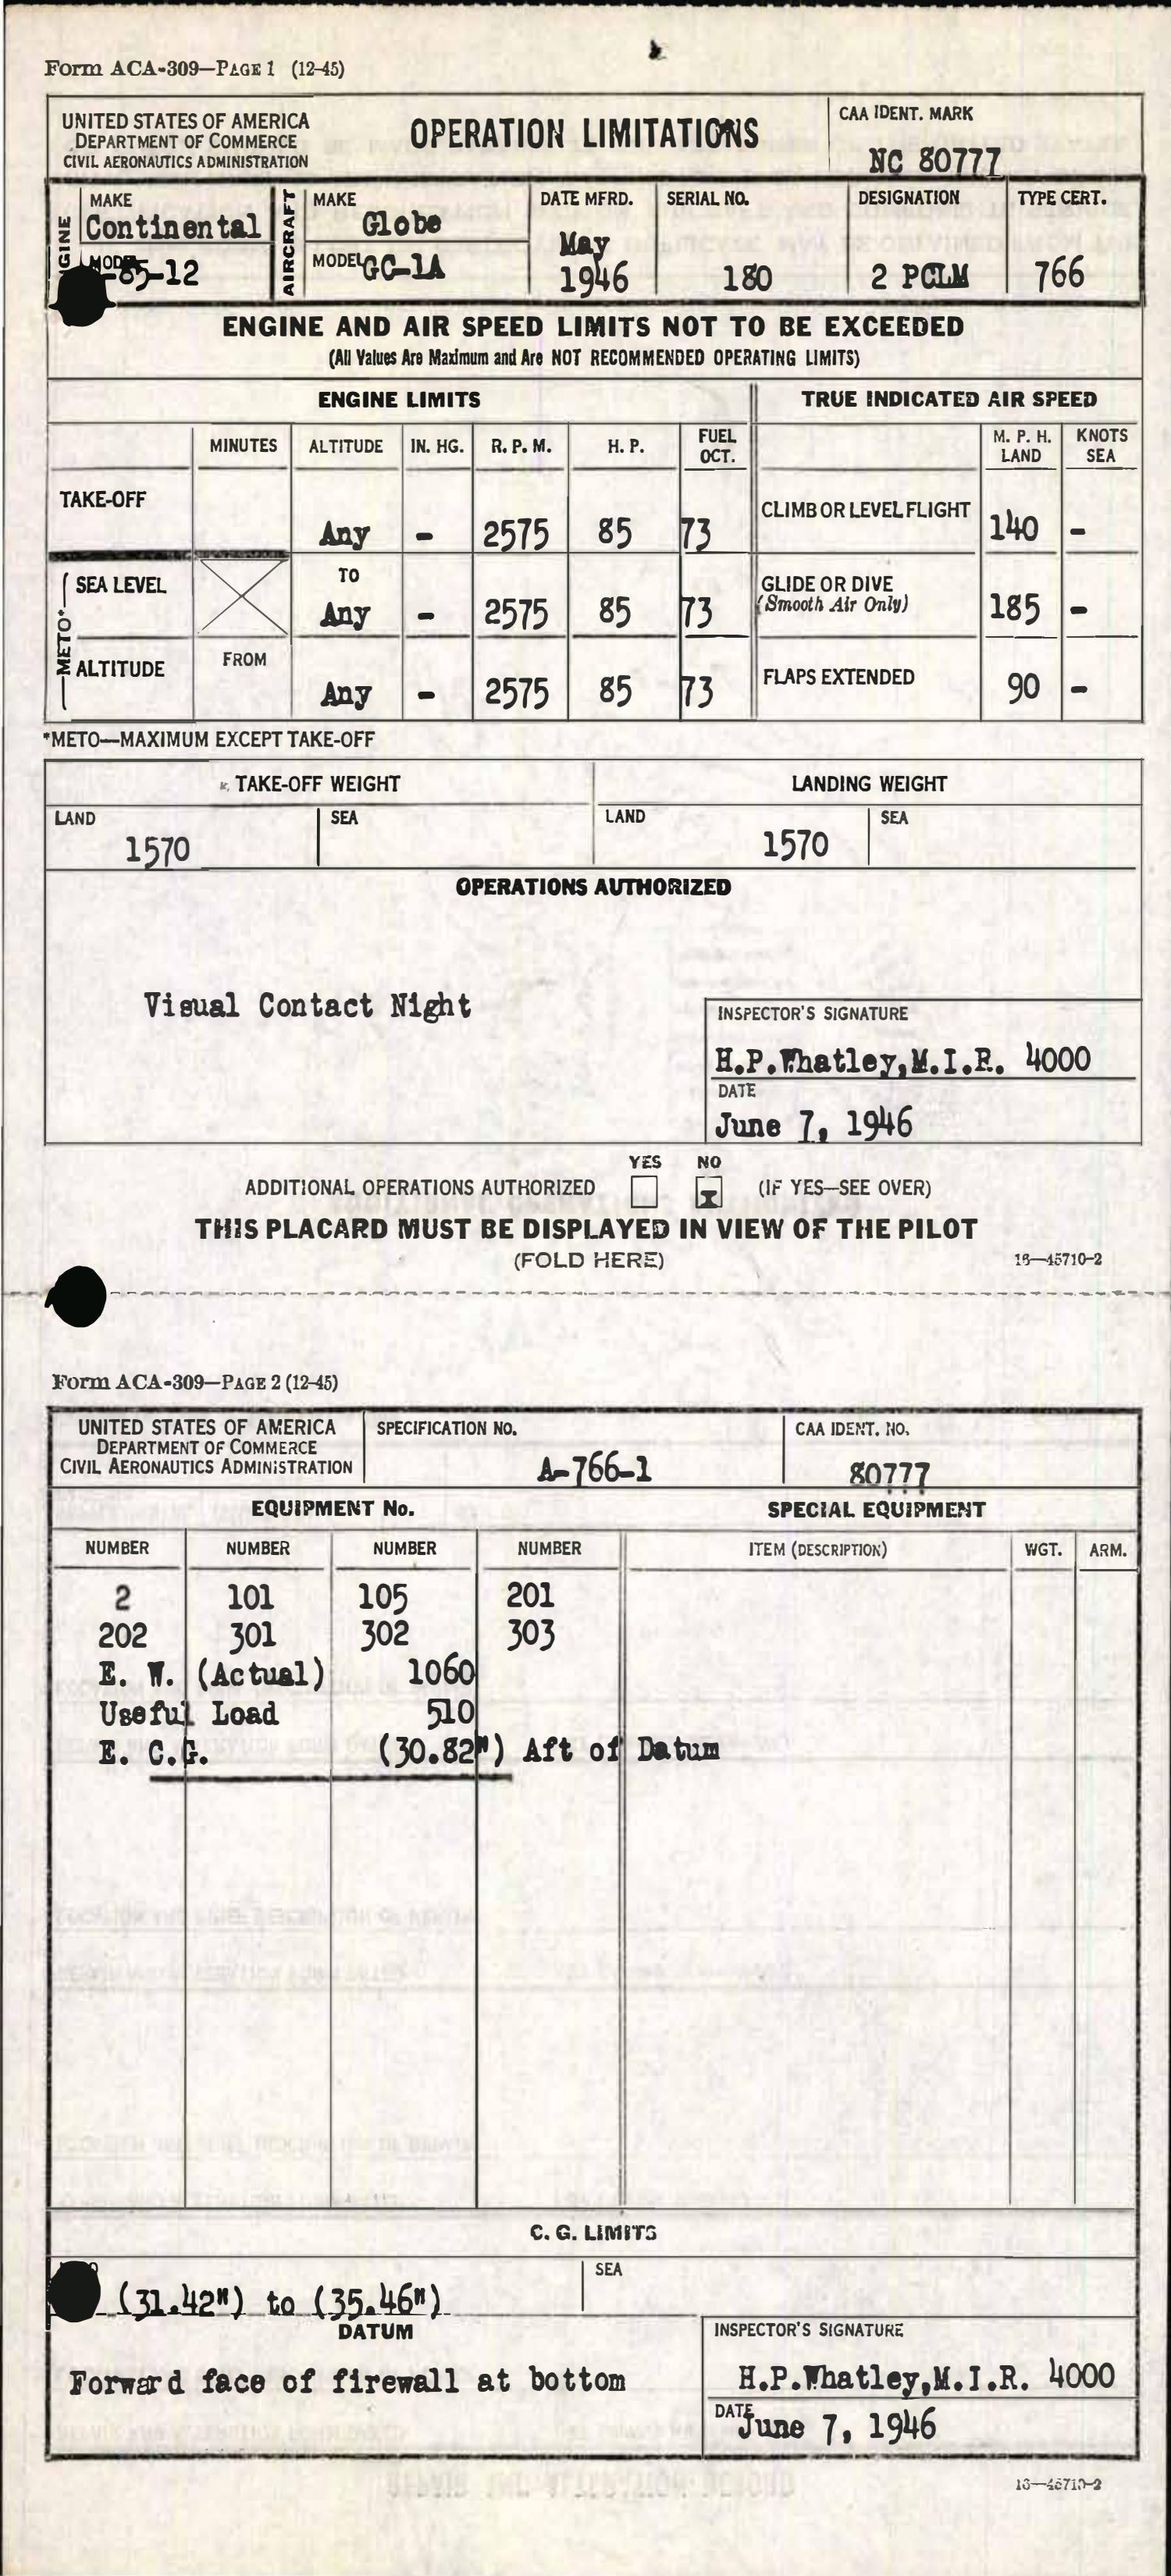 Form ACA-309—PAGE 1 (12-45)
UNITED STATES OF AMERICA
DEPARTMENT OF COMMERCE
CIVIL AERONAUTICS ADMINISTRATION
OPERATION LIMITATIONS
CAA IDENT. MARK
NC 80777
MAKE
Continental
-85-12
AIRCRAFT
MAKE
Globe
MODEL GC-1A
DATE MFRD.
May
1946
SERIAL NO.
180
DESIGNATION
2 PCLM
TYPE CERT.
766
ENGINE AND AIR SPEED LIMITS NOT TO BE EXCEEDED
(All Values Are Maximum and Are NOT RECOMMENDED OPERATING LIMITS)
ENGINE LIMITS
TRUE INDICATED AIR SPEED
MINUTES ALTITUDE IN. HG. R. P. M. H. P. FUEL OCT.
M. P. H. LAND KNOTS SEA
TAKE-OFF Any - 2575 85 73
CLIMB OR LEVEL FLIGHT 140 -
METO*
SEA LEVEL TO Any - 2575 85 73
GLIDE OR DIVE (Smooth Air Only) 185 -
ALTITUDE FROM Any - 2575 85 73
FLAPS EXTENDED 90 -
*METO—MAXIMUM EXCEPT TAKE-OFF
TAKE-OFF WEIGHT LANDING WEIGHT
LAND SEA LAND SEA
1570 1570
OPERATIONS AUTHORIZED
Visual Contact Night
INSPECTOR'S SIGNATURE
H.P.Whatley,M.I.R. 4000
DATE
June 7, 1946
YES NO
ADDITIONAL OPERATIONS AUTHORIZED (IF YES—SEE OVER)
THIS PLACARD MUST BE DISPLAYED IN VIEW OF THE PILOT
(FOLD HERE) 16—45710-2
Form ACA-309—PAGE 2 (12-45)
UNITED STATES OF AMERICA
DEPARTMENT OF COMMERCE
CIVIL AERONAUTICS ADMINISTRATION
SPECIFICATION NO.
A-766-1
CAA IDENT. NO.
80777
EQUIPMENT No. SPECIAL EQUIPMENT
NUMBER NUMBER NUMBER NUMBER ITEM (DESCRIPTION) WGT. ARM.
2 101 105 201
202 301 302 303
E. W. (Actual) 1060
Useful Load 510
E. C.G. (30.82") Aft of Datum
C. G. LIMITS
SEA
(31.42") to (35.46")
DATUM
Forward face of firewall at bottom
INSPECTOR'S SIGNATURE
H.P.Whatley,M.I.R. 4000
DATE
June 7, 1946
16—45710-2